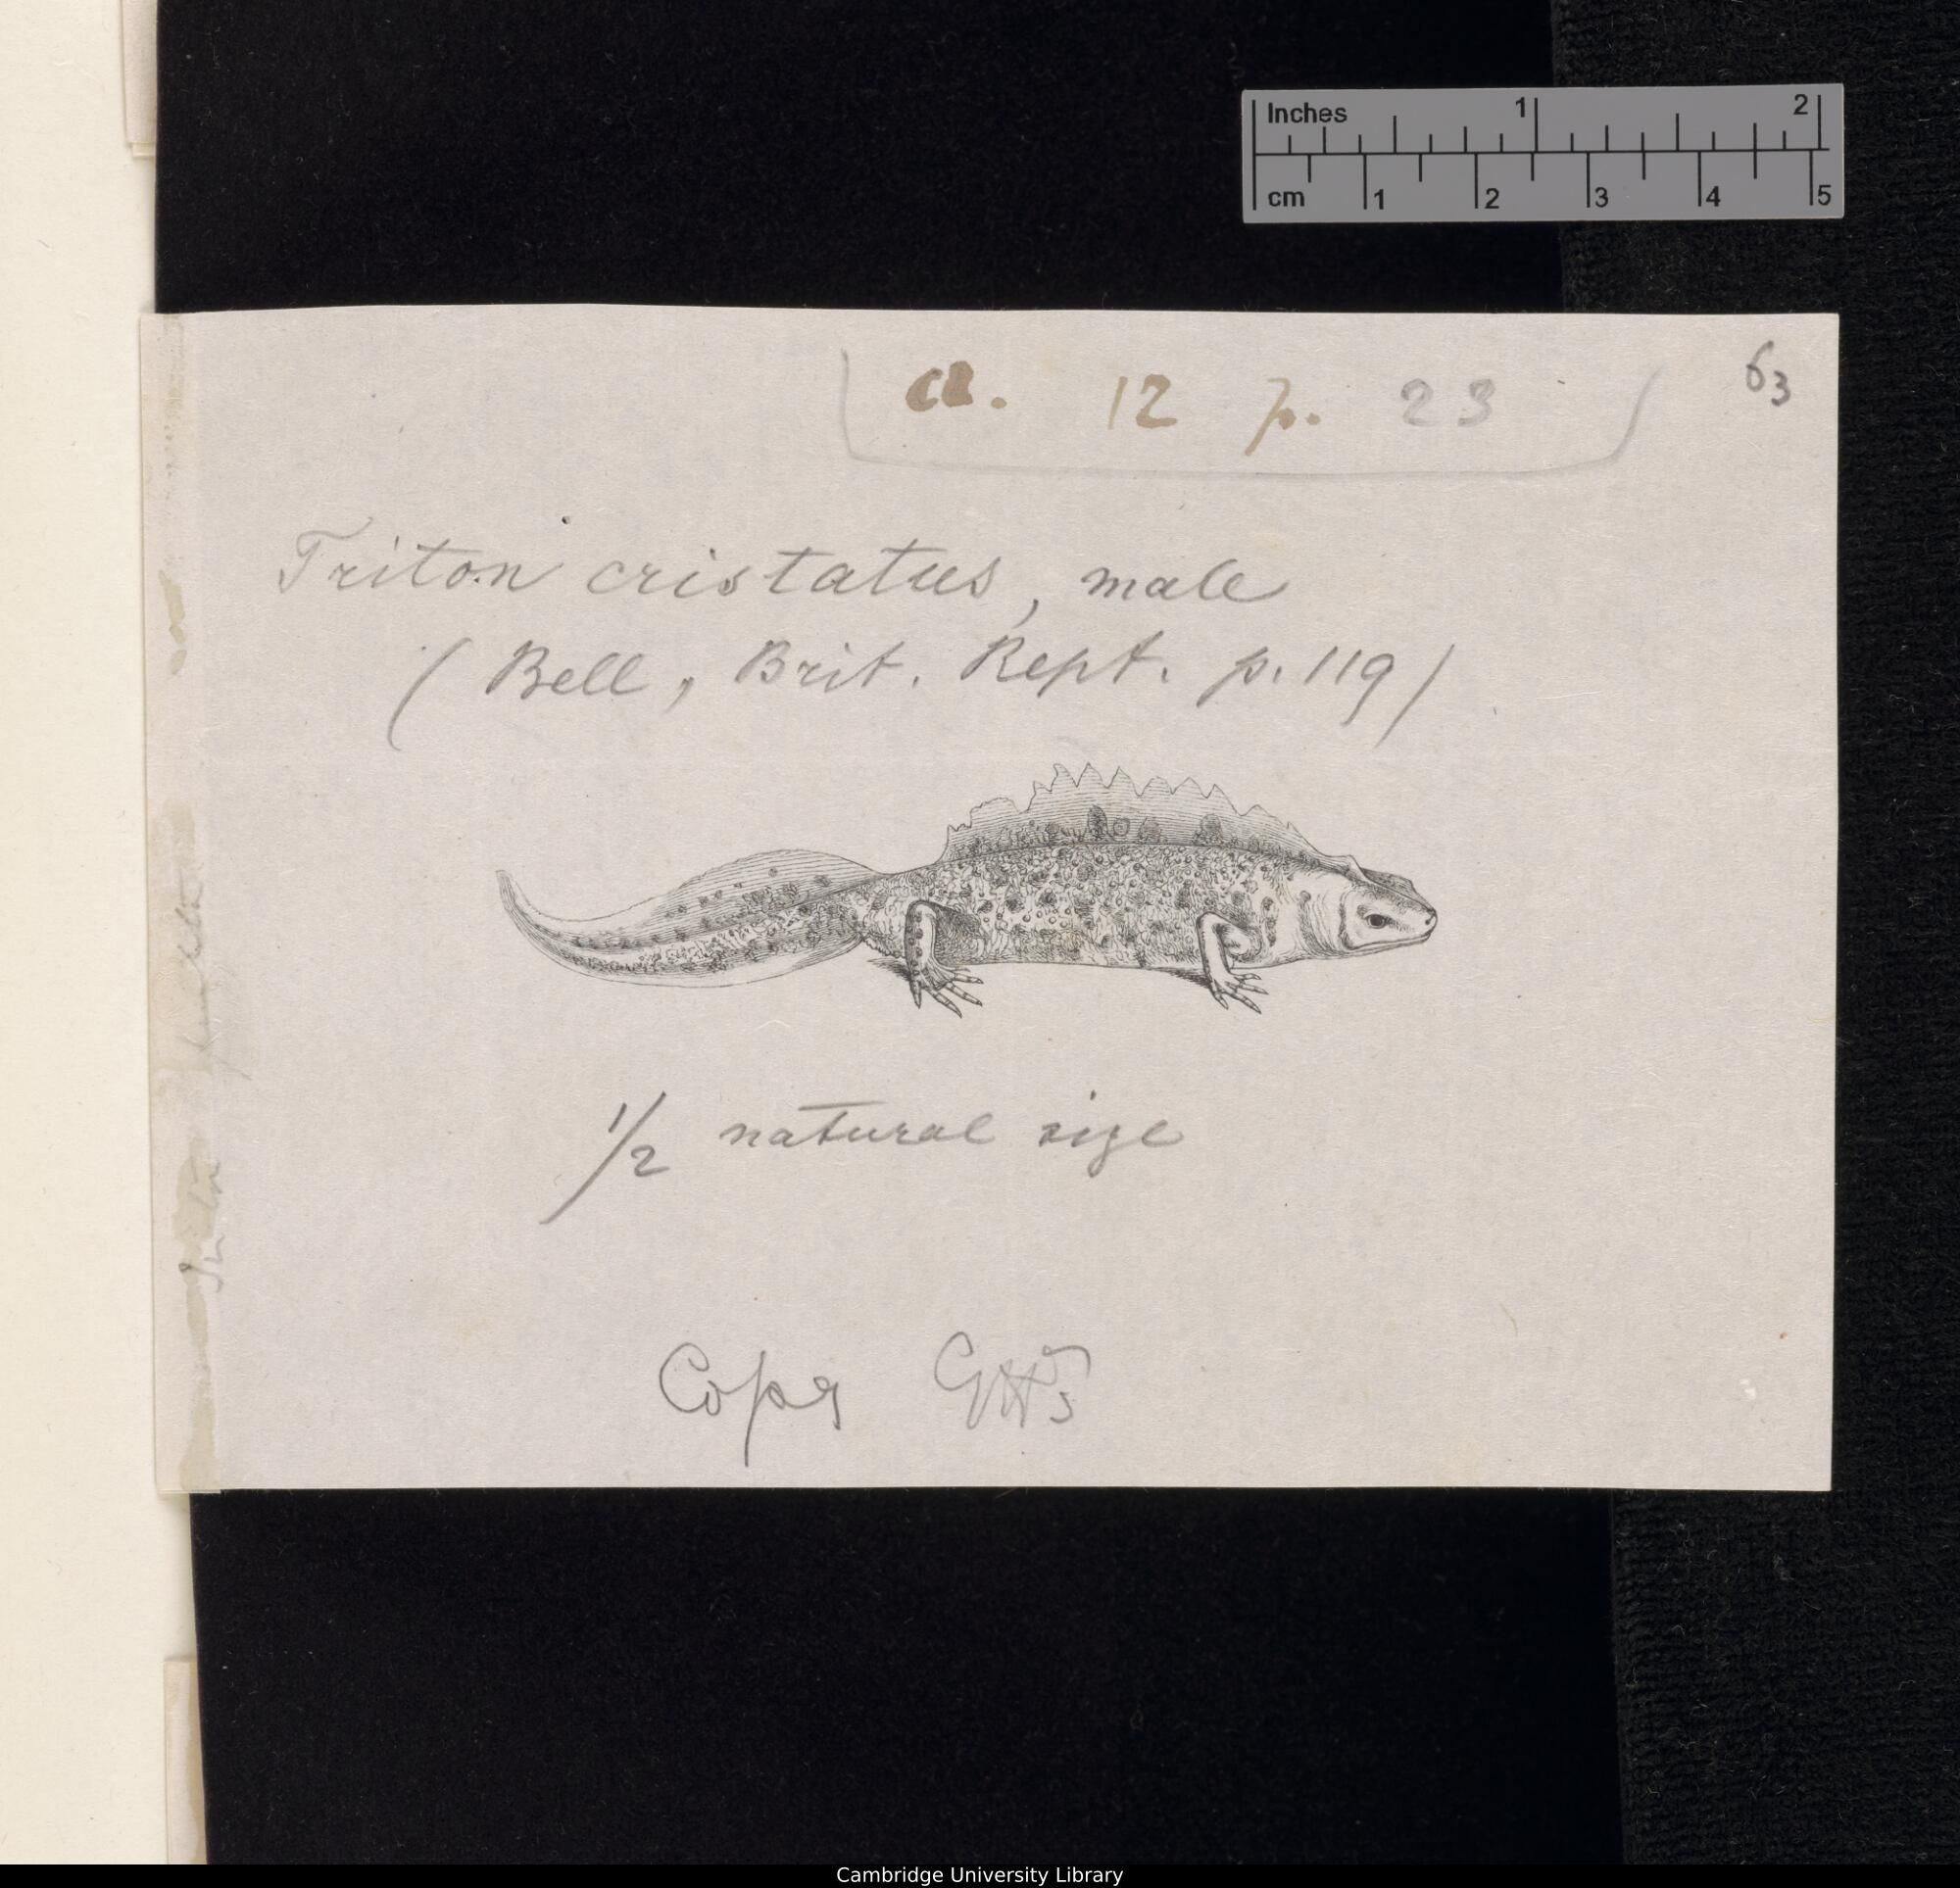 Inches 1 2
cm 1 2 3 4 5
63
a. 12 p. 23
Triton cristatus, male
(Bell, Brit. Rept. p. 119)
1/2 natural size
Copy
Cambridge University Library